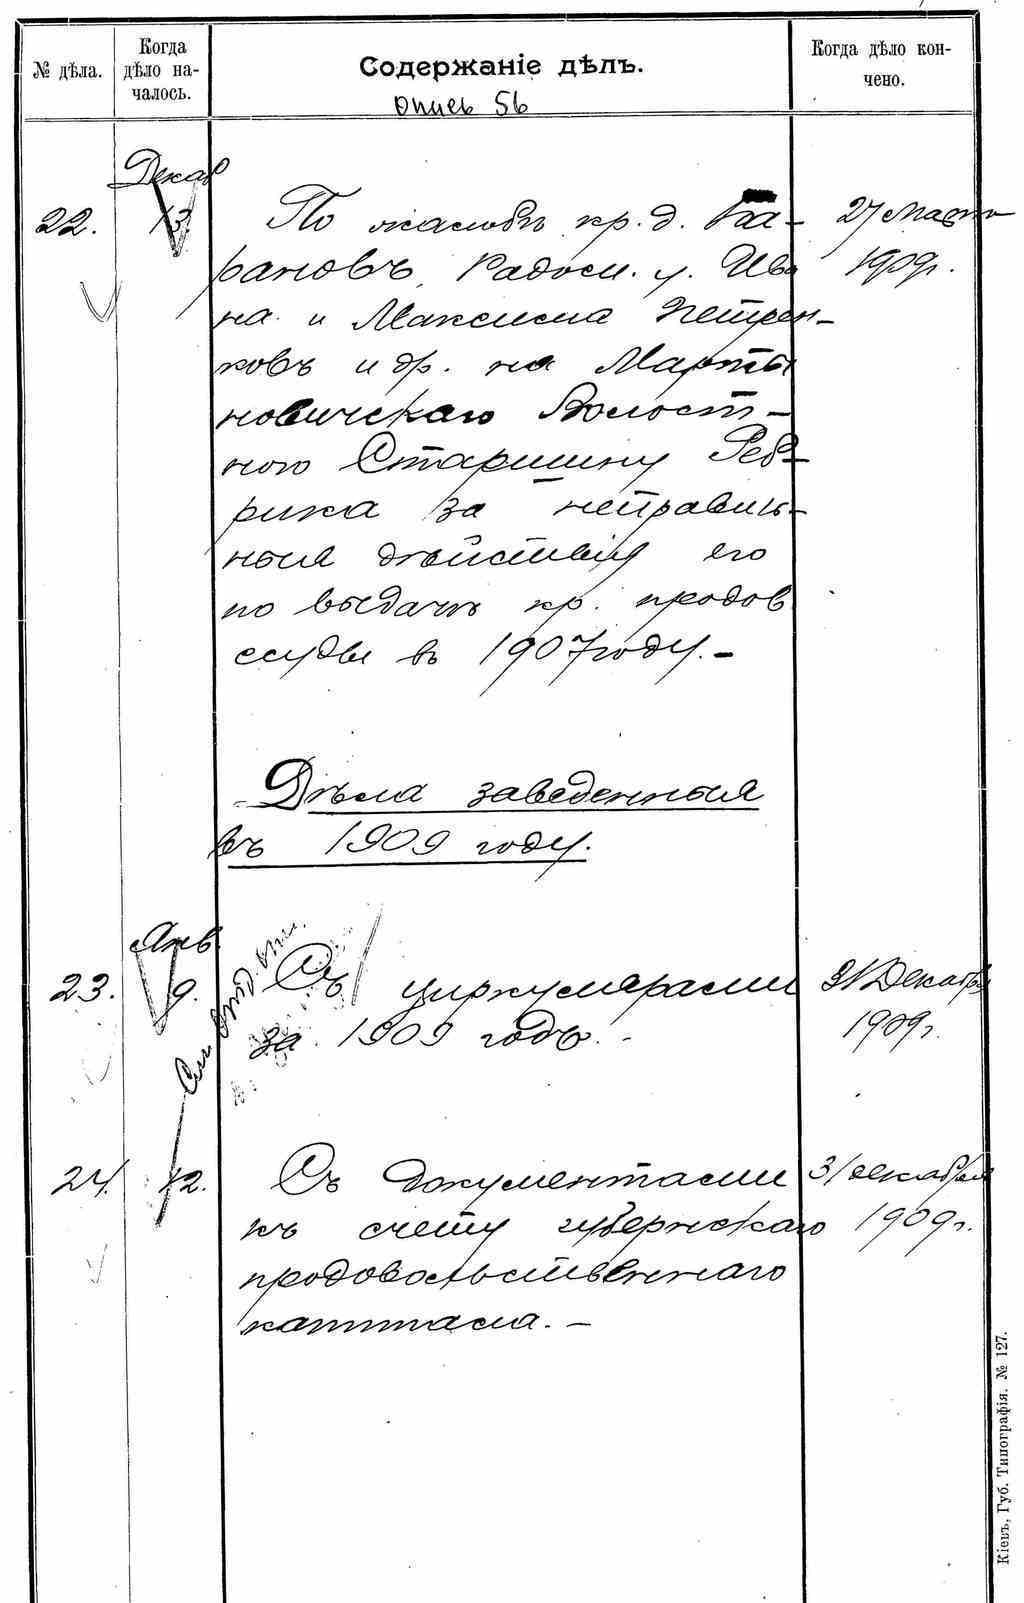 № дѣла.
Когда
дѣло на-
чалось.
Содержаніе дѣлъ.
Опись 56
Когда дѣло кон-
чено.
Декаб
22.
13
По жалобѣ кр. д. Ба-
рановъ, Радом. у. Ива
на и Максима Петрен-
ковъ и др. на Марты
новичскаго Волост-
ного Старшину Реб-
рика за неправиль-
ныя дѣйствія его
по выдачѣ кр. продов
ссуды въ 1907 году. -
27 Марта
1909г.
Дѣла заведенныя
въ 1909 году.
Янв.
23.
9.
Съ циркулярами
за 1909 годъ. -
31 Декабря
1909г.
См. отд. оп.
24.
12.
Съ документами
къ счету губернскаго
продовольственнаго
капитала. -
31 декабря
1909г.
Кіевъ, Губ. Типографія. № 127.